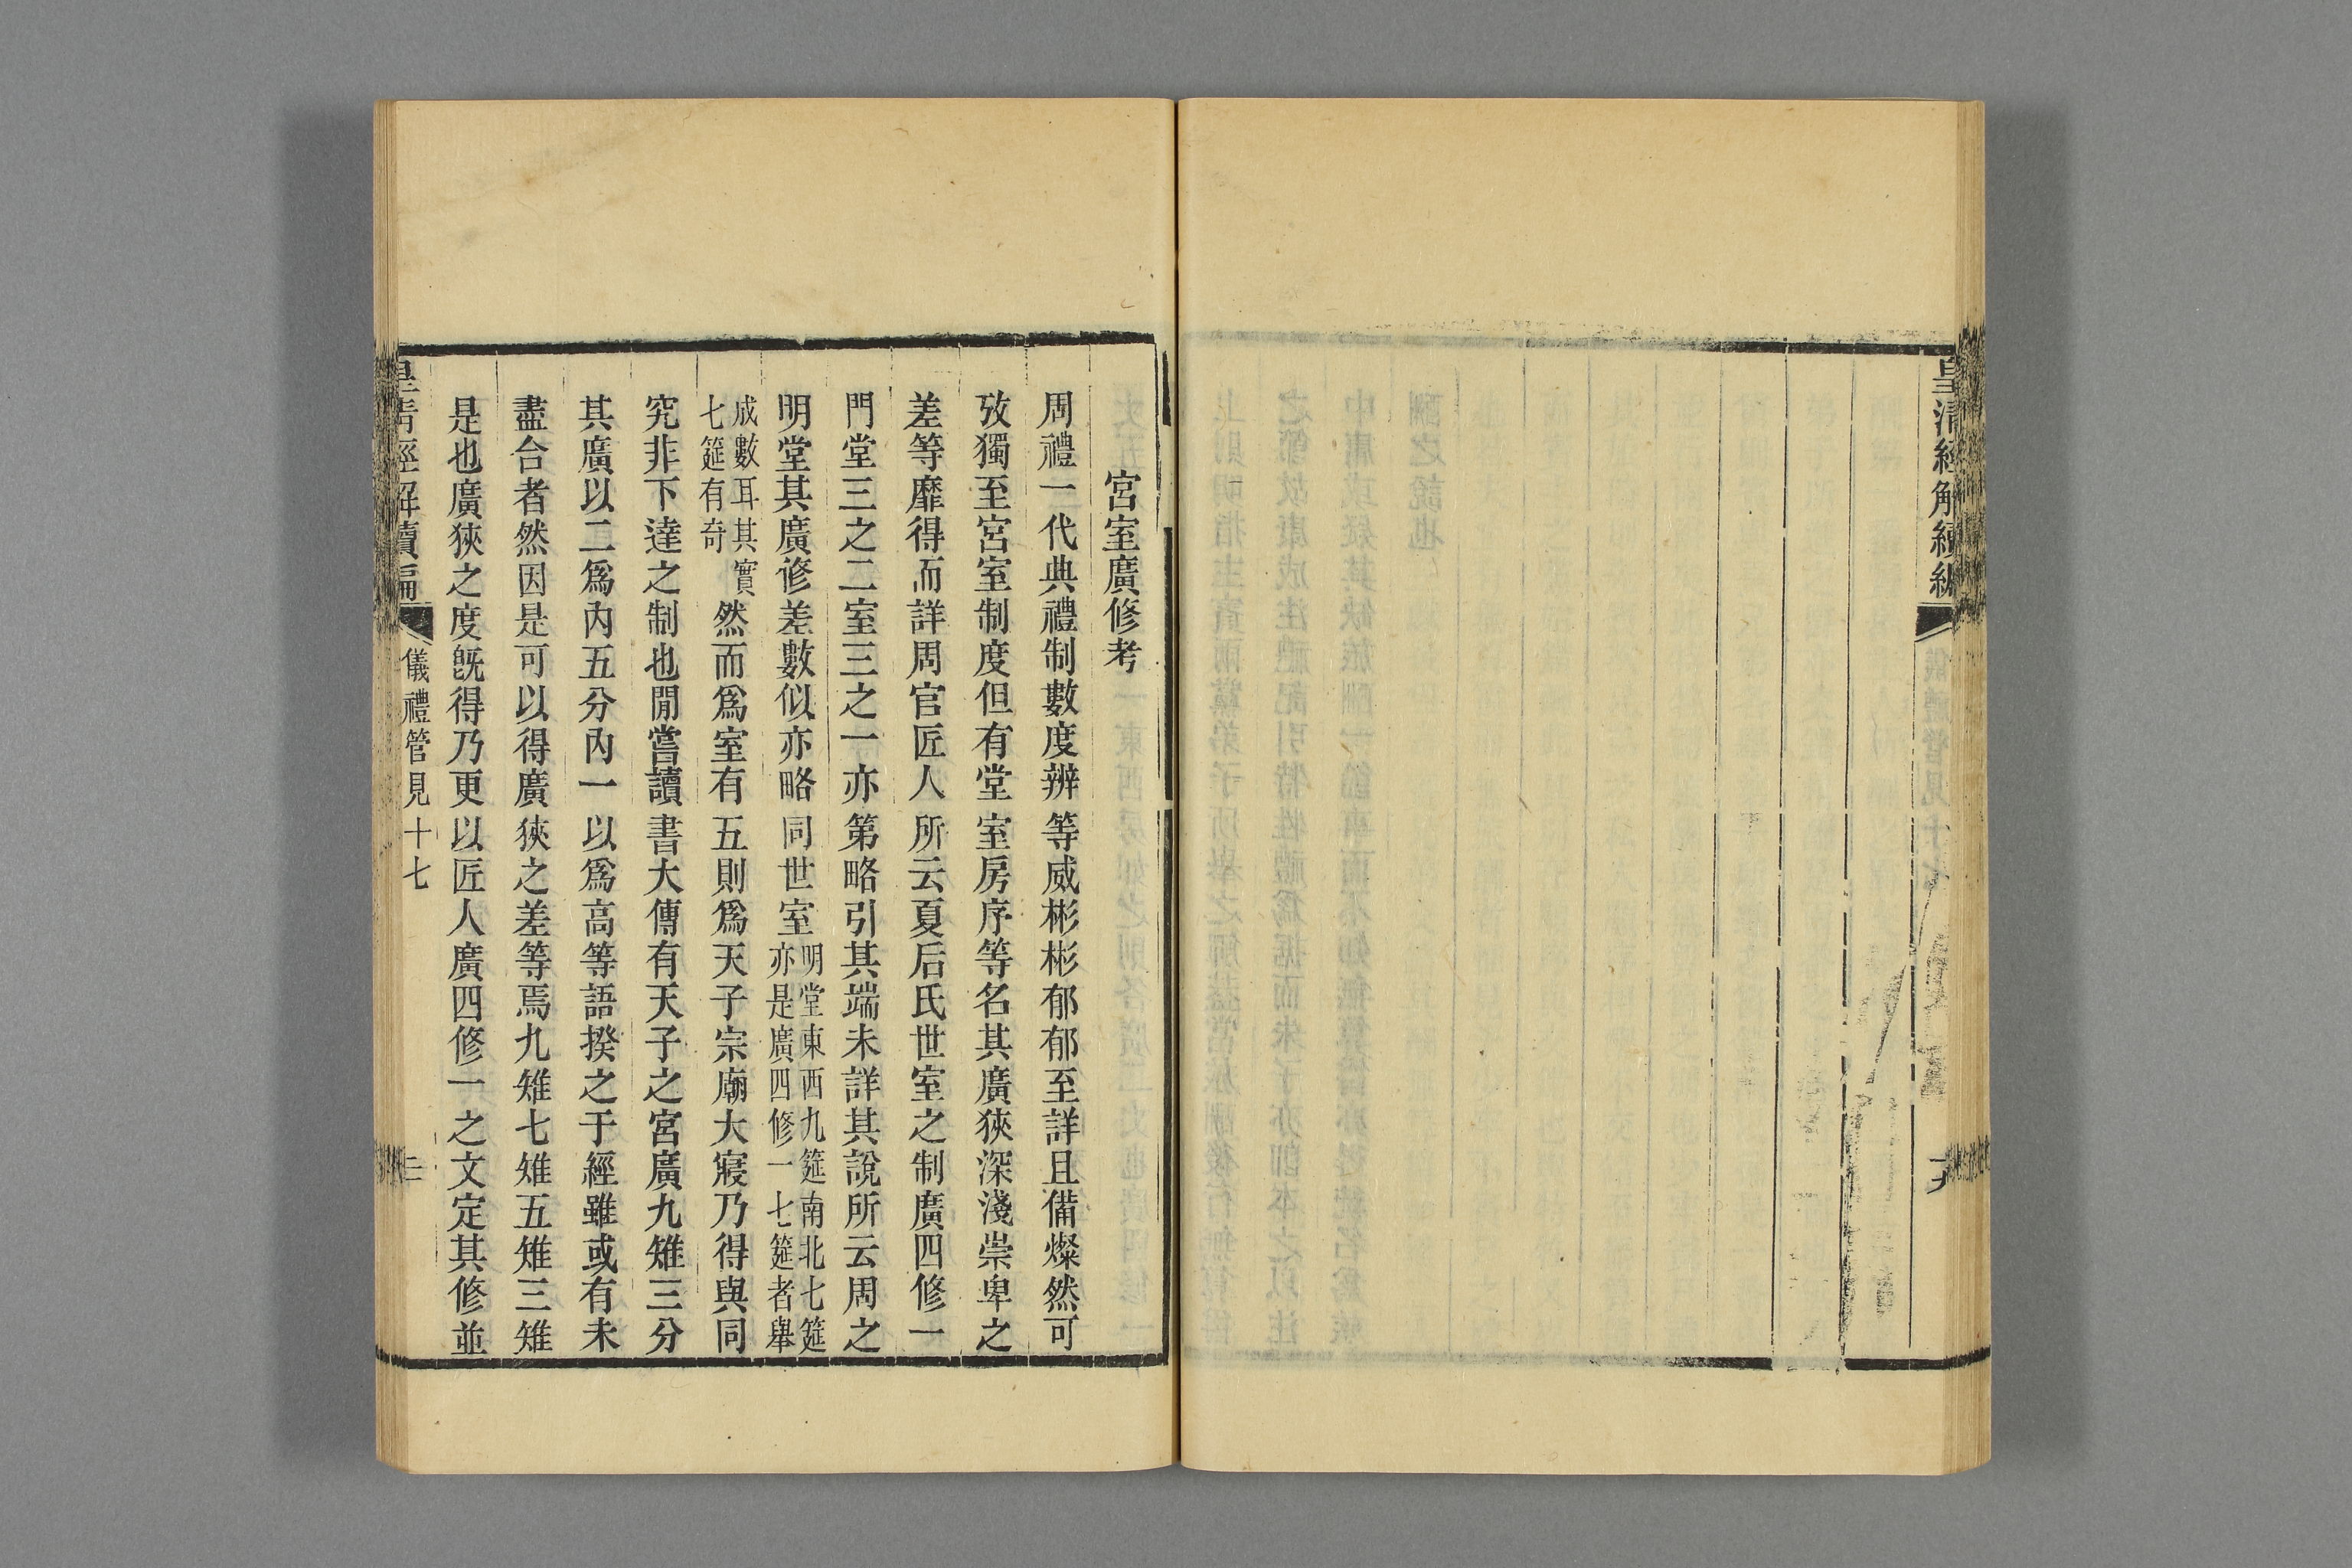 皇清經解續編
宮室廣修考
周禮一代典禮制數度辨等威彬彬郁郁至詳且備燦然可
攷獨至宮室制度但有堂室房序等名其廣狹深淺崇卑之
差等靡得而詳周官匠人所云夏后氏世室之制廣四修一
門堂三之二室三之一亦第略引其端未詳其說所云周之
明堂其廣修差數似亦略同世室明堂東西九筵南北七筵
亦是廣四修一七筵者舉
成數耳其實
七筵有奇
然而爲室有五則爲天子宗廟大寢乃得與同
究非下達之制也閒嘗讀書大傳有天子之宮廣九雉三分
其廣以二爲內五分內一以爲高等語揆之于經雖或有未
盡合者然因是可以得廣狹之差等焉九雉七雉五雉三雉
是也廣狹之度旣得乃更以匠人廣四修一之文定其修並
皇清經解續編 儀禮管見十七